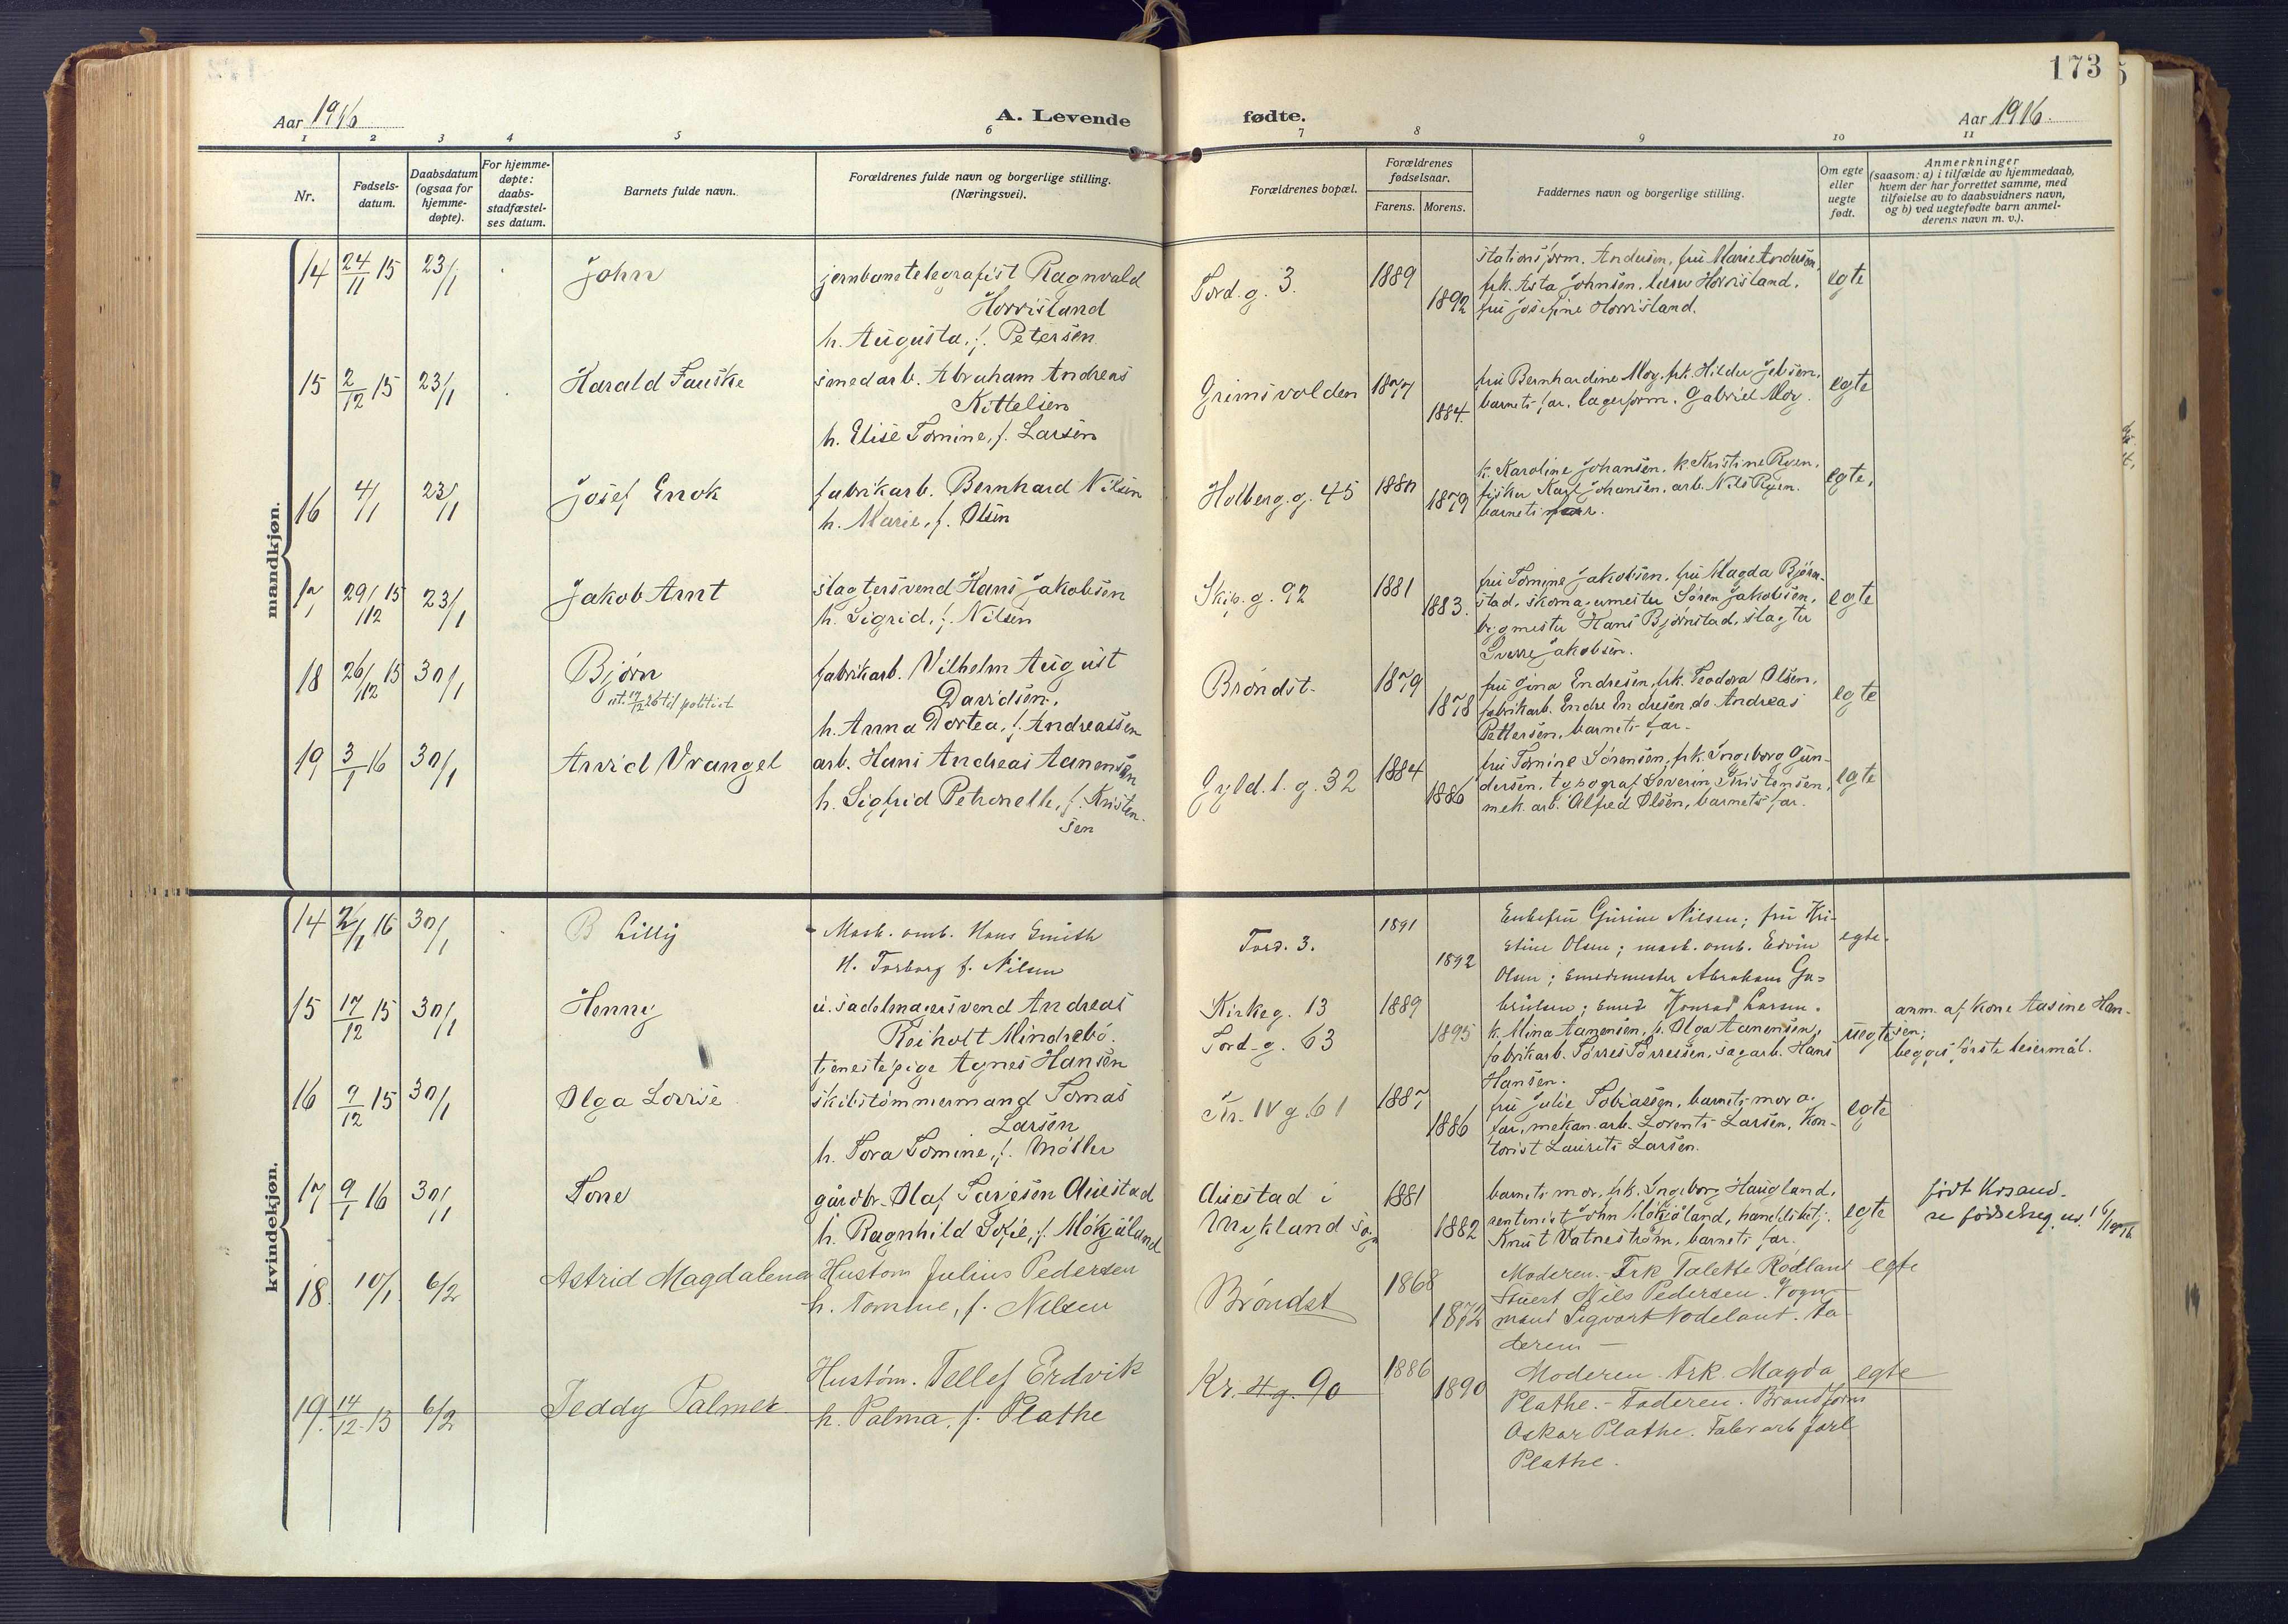 173
Aar 1916
A. Levende fødte.
Aar 1916.
1 2 3 4 5 6 7 8 9 10 11
Nr.
Fødsels-
datum.
Daabsdatum
(ogsaa for
hjemme-
døpte).
For hjemme-
døpte:
daabs-
stadfæstel-
ses datum.
Barnets fulde navn.
Forældrenes fulde navn og borgerlige stilling.
(Næringsvei).
Forældrenes bopæl.
Forældrenes
fødselsaar.
Farens. Morens.
Faddernes navn og borgerlige stilling.
Om egte
eller
uegte
født.
Anmerkninger
(saasom: a) i tilfælde av hjemmedaab,
hvem der har forrettet samme, med
tilføielse av to daabsvidners navn,
og b) ved uegtefødte barn anmel-
derens navn m. v.).
mandkjøn.
14 24/11 15 23/1
John
jernbanetelegrafist Ragnvald
Horrisland
h. Augusta, f. Petersen
Tord. g. 3.
1889
1892
stationsform. Andersen, frü Marie Andersen,
frk. Asta Johnsen, Horrisland,
frü Josefine Horrisland.
egte
15 2/12 15 23/1
Harald Fauske
smedarb. Abraham Andreas
Kittelsen
h. Elise Tomine, f. Larsen
Grimsvolden
1877
1884.
frü Bernhardine Moy, frk. Hilda Jebsen,
barnets far, lagerform. Gabriel Moy.
egte
16 4/1 23/1
Josef Enok
fabrikarb. Bernhard Nilsen
h. Marie, f. Olsen
Holberg. g. 45
1880
1879
k. Karoline Johansen, k. Kristine Ryen,
fisker Karl Johansen, arb. Nils Ryen.
barnets far.
egte,
17 29/12 15 23/1
Jakob Arnt
slagtersvend Hans Jakobsen
h. Sigrid, f. Nilsen
Skip. g. 92
1881
1883.
frü Tomine Jakobsen, frü Magda Bjørn-
stad, skomagermester Søren Jakobsen,
bygmester Hans Bjørnstad, slagter
Sverre Jakobsen.
egte
18 26/12 15 30/1
Bjørn
ut. 17/12 26 til politiet
fabrikarb. Vilhelm August
Davidsen,
h. Anna Dortea, f. Andreassen
Brøndst.
1879
1878
frü Gina Endresen, frk. Teodora Olsen,
fabrikarb. Endre Endresen, do. Andreas
Pettersen, barnets far.
egte
19 3/1 16 30/1
Arvid Vrangel
arb. Hans Andreas Aanensen
h. Sigfrid Petronelle, f. Kristen-
sen
Gyld. l. g. 32
1884
1886
frü Tomine Sørensen, frk. Ingeborg Gün-
dersen, typograf Severin Kristensen,
mek. arb. Alfred Olsen, barnets far.
egte
kvindekjøn.
14 2/1 16 30/1
B Lilly
Mask. arb. Hans Smith
H. Torborg f. Nilsen
Tord. 3.
1891
1892
Enkefrü Gurine Nilsen; frü Kri-
stine Olsen; mask. arb. Edvin
Olsen; smedmester Abraham Ga-
brielsen; smed Konrad Larsen.
egte.
15 17/12 15 30/1
Henny
ü. sadelmagersvend Andreas
Reiholt Mindrebö.
tjenestepige Agnes Hansen
Kirkeg. 13
Tord. g. 63
1889
1895
k. Mina Aanensen, p. Olga Aanensen,
fabrikarb. Torres Torressen, sagarb. Hans
Hansen.
üegte
anm. af kone Aasine Han-
sen;
begges første leiermål.
16 9/12 15 30/1
Olga Lovise
skibstømmermand Tomas
Larsen
h. Tora Tomine, f. Møller
Kr. IV g. 61
1887
1886
frü Julie Tobiassen, barnets mor o.
far, mekan. arb. Lorents Larsen, kon-
torist Laurits Larsen.
egte
17 9/1 16 30/1
Tone
gårdbr. Olaf Tarjesen Auestad
h. Ragnhild Tofie, f. Møkjåland
Auestad i
Mykland sogn
1881
1882
barnets mor, frk. Ingeborg Haugland,
rentenist John Møkjåland, handelsbetj.
Knut Vatneström, barnets far.
egte
født Krsand.
se fødselreg. 16/1 1916
18 10/1 6/2
Astrid Magdalena
Hustom Julius Pedersen
h. Tomine, f. Nilsen
Brøndst
1868
1872
Moderen. Frk Talette Rødland
Stuert Nils Pedersen. Vogn-
mand Sigvart Nodeland. Fa-
deren —
egte
19. 14/12 13 6/2
Teddy Palmer
Hustøm. Tellef Erdvik
h. Palma, f. Plathe
Kr. 4 g. 90
1886
1890
Moderen. Frk. Magda
Plathe. - Faderen. Brandform
Oskar Plathe. Fabrarb Jarl
Plathe.
egte